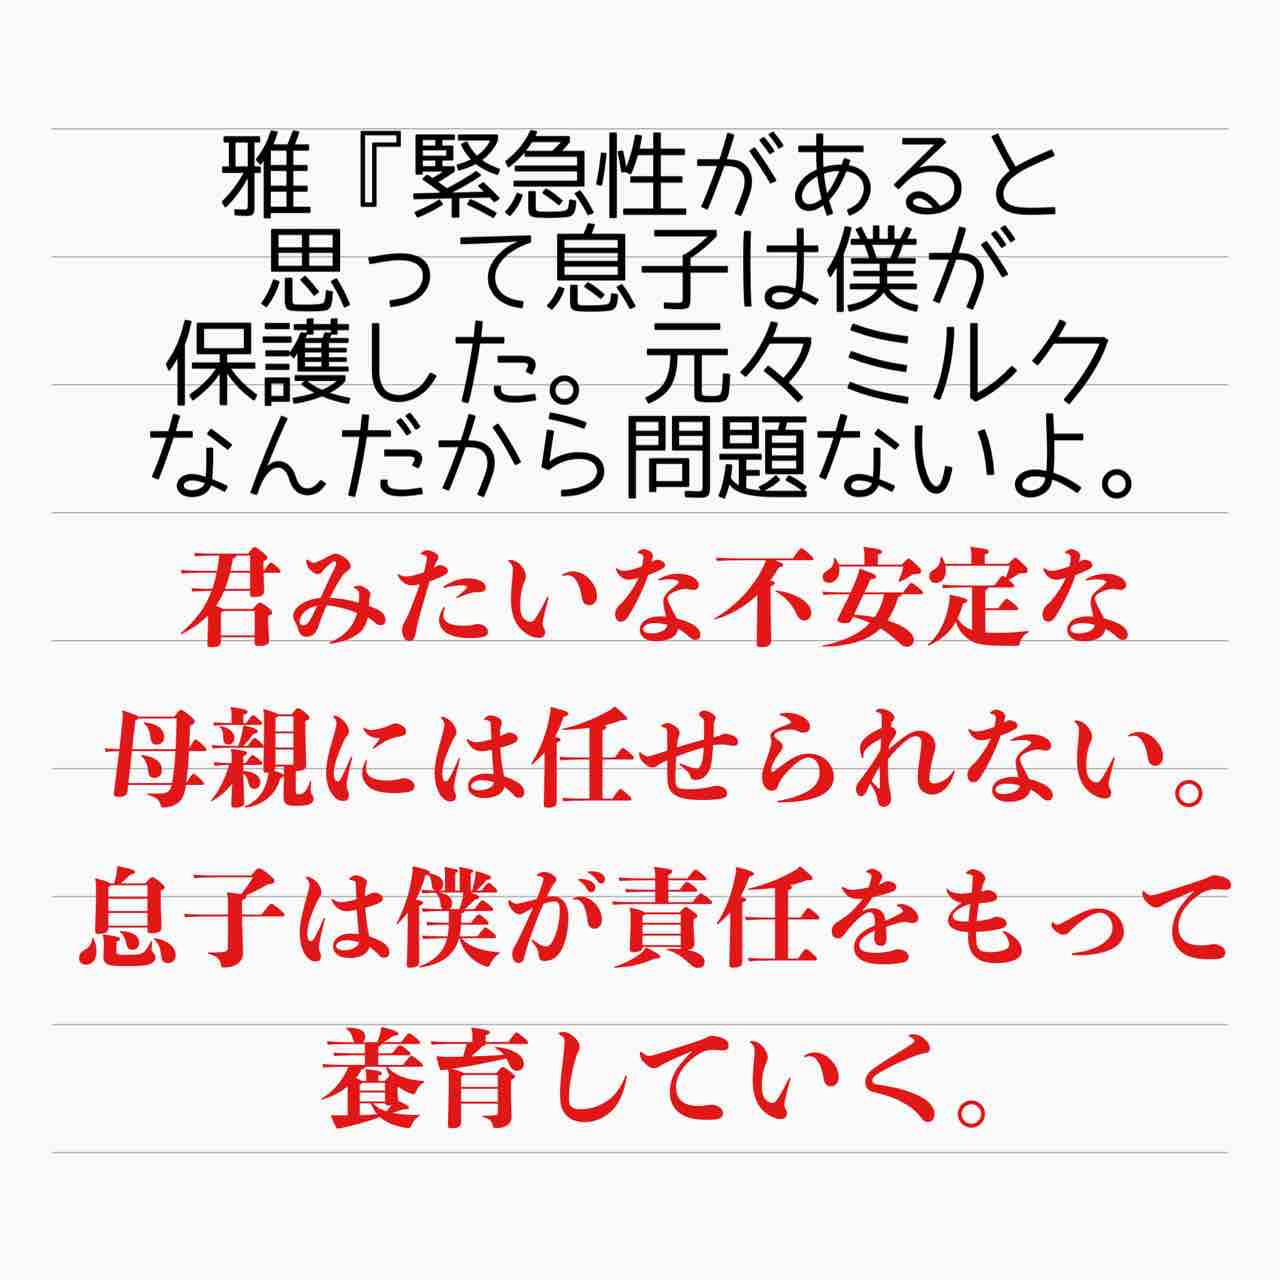 雅『緊急性があると
思って息子は僕が
保護した。元々ミルク
なんだから問題ないよ。
君みたいな不安定な
母親には任せられない。
息子は僕が責任をもって
養育していく。